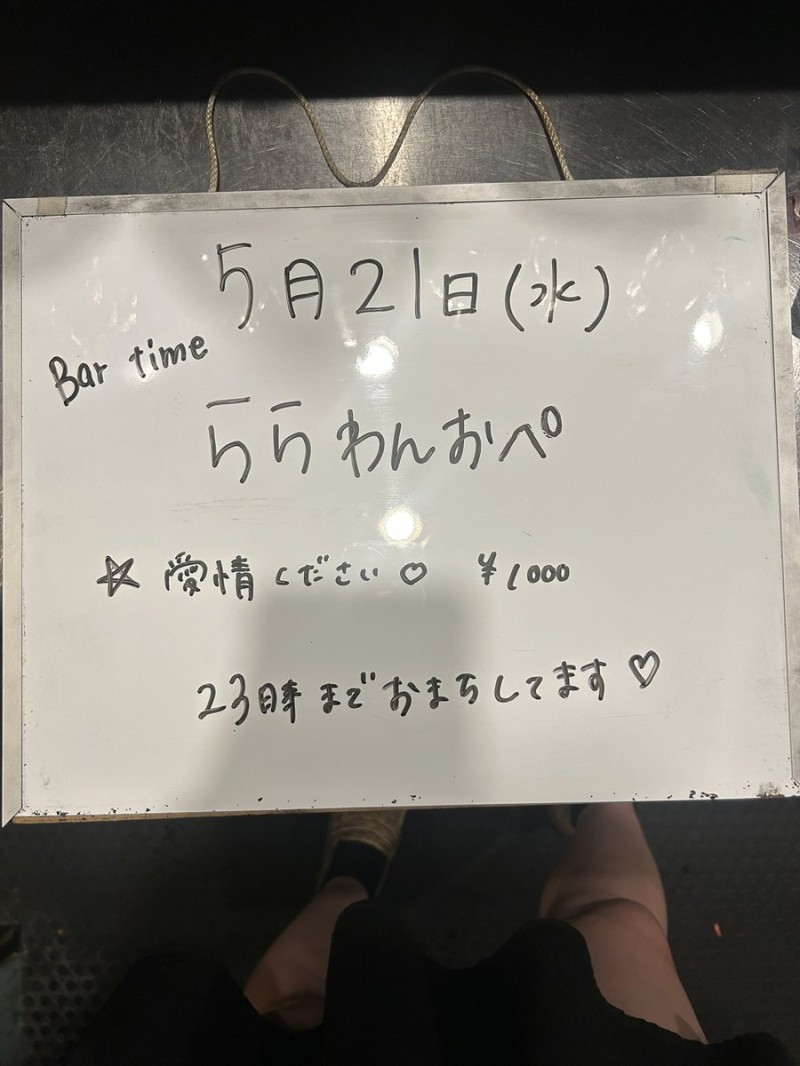 5月21日(水)
Bar time
ららわんおぺ
☆ 愛情ください♡ ¥1000
23時までおまちしてます♡